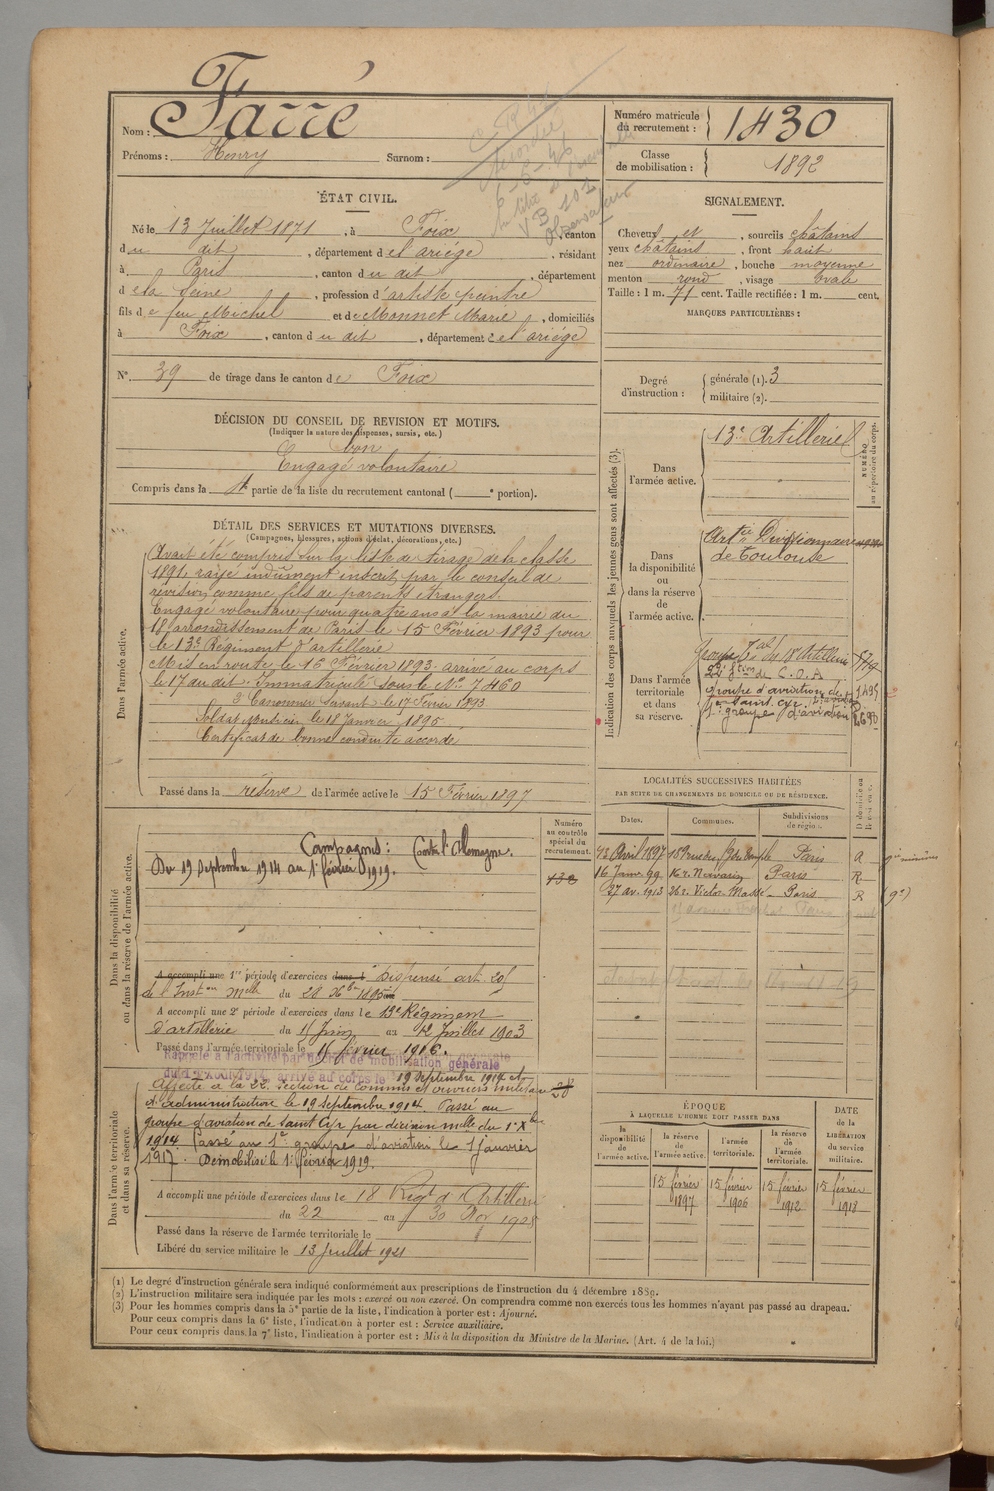 Nom : Farré
Prénoms : Henry Surnom :
Numéro matricule du recrutement : 1430
Classe de mobilisation : 1892
ÉTAT CIVIL.
Né le 13 Juillet 1871, à Foix, canton
du dit, département de l'ariége, résidant
à Paris, canton du dit, département
de la Seine, profession d'artiste peintre
fils de feu Michel et de Monnet Marie, domiciliés
à Foix, canton du dit, département de l'ariége
N° 39 de tirage dans le canton de Foix
SIGNALEMENT.
Cheveux et, sourcils châtains
yeux châtains, front haut
nez ordinaire, bouche moyenne
menton rond, visage ovale
Taille : 1 m. 71 cent. Taille rectifiée : 1 m. cent.
MARQUES PARTICULIÈRES :
Degré d'instruction : générale (1). 3
militaire (2).
DÉCISION DU CONSEIL DE REVISION ET MOTIFS.
(Indiquer la nature des dispenses, sursis, etc.)
bon
Engagé volontaire
Compris dans la 4e partie de la liste du recrutement cantonal ( e portion).
DÉTAIL DES SERVICES ET MUTATIONS DIVERSES.
(Campagnes, blessures, actions d'éclat, décorations, etc.)
Dans l'armée active.
Avait été compris sur la liste de tirage de la classe
1891, rayé indûment inscrit par le conseil de
révision comme fils de parents étrangers.
Engagé volontaire pour quatre ans à la mairie du
18e arrondissement de Paris le 15 Février 1893 pour
le 13e Régiment d'artillerie
Mis en route le 16 Février 1893. arrivé au corps
le 17 au dit. Immatriculé sous le N° 7460
2e Canonnier Servant le 17 Février 1893
Soldat Musicien le 18 Janvier 1895
Certificat de bonne conduite accordé
Passé dans la réserve de l'armée active le 15 Février 1897
Indication des corps auxquels les jeunes gens sont affectés (3).
NUMÉRO au répertoire du corps.
Dans l'armée active.
13e Artillerie
Dans la disponibilité ou dans la réserve de l'armée active.
Artie Divisionnaire
de Toulouse
Dans l'armée territoriale et dans sa réserve.
Groupe Tal du 18e Artillerie
22e Son de C.O.A
groupe d'aviation de
Saint Cyr
1er groupe d'aviation
LOCALITÉS SUCCESSIVES HABITÉES
PAR SUITE DE CHANGEMENTS DE DOMICILE OU DE RÉSIDENCE.
Dates. Communes. Subdivisions de région. Domicile ou Résidence.
13 Avril 1897 189 rue du fbg du Temple Paris A
16 Janv 99 16 r. Navarin Paris R
27 av. 1913 26 r. Victor-Massé Paris R (9e)
Dans la disponibilité ou dans la réserve de l'armée active.
Numéro au contrôle spécial du recrutement.
Campagnes : Contre l'Allemagne.
Du 19 Septembre 1914 au 1er février 1919.
A accompli une 1re période d'exercices dans l Dispensé art. 20
de l'Inston Mlle du 28 Xbre 1895
A accompli une 2e période d'exercices dans le 13e Régiment
d'artillerie du 15 Juin au 12 Juillet 1903
Passé dans l'armée territoriale le 15 février 1906.
Rappelé à l'activité par décret de mobilisation générale
du 1er Août 1914, arrivé au corps le 19 Septembre 1914 et
Dans l'armée territoriale et dans sa réserve.
affecté à la 22e section de Commis et ouvriers militaires
d'administration le 19 septembre 1914. Passé au
groupe d'aviation de Saint Cyr par décision mlle du 1er Xbre
1914 Passé au 1er groupe d'aviation le 1 Janvier
1917. Démobilisé le 1er février 1919.
A accompli une période d'exercices dans le 18 Regt d'Artillerie
du 22 au 30 Nov 1908
Passé dans la réserve de l'armée territoriale le
Libéré du service militaire le 13 juillet 1921
ÉPOQUE
À LAQUELLE L'HOMME DOIT PASSER DANS
la disponibilité de l'armée active. la réserve de l'armée active. l'armée territoriale. la réserve de l'armée territoriale. DATE DE LA LIBÉRATION du service militaire.
15 février 1897 15 février 1906 15 février 1912 15 février 1918
(1) Le degré d'instruction générale sera indiqué conformément aux prescriptions de l'instruction du 4 décembre 1889.
(2) L'instruction militaire sera indiquée par les mots : exercé ou non exercé. On comprendra comme non exercés tous les hommes n'ayant pas passé au drapeau.
(3) Pour les hommes compris dans la 5e partie de la liste, l'indication à porter est : Ajourné.
Pour ceux compris dans la 6e liste, l'indication à porter est : Service auxiliaire.
Pour ceux compris dans la 7e liste, l'indication à porter est : Mis à la disposition du Ministre de la Marine. (Art. 4 de la loi.)